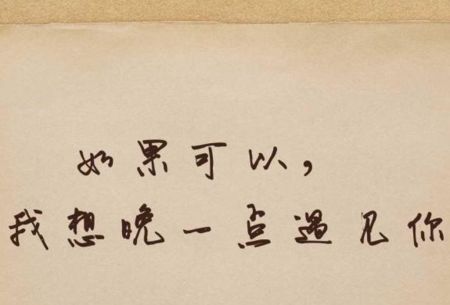 如果可以,
我想晚一点遇见你